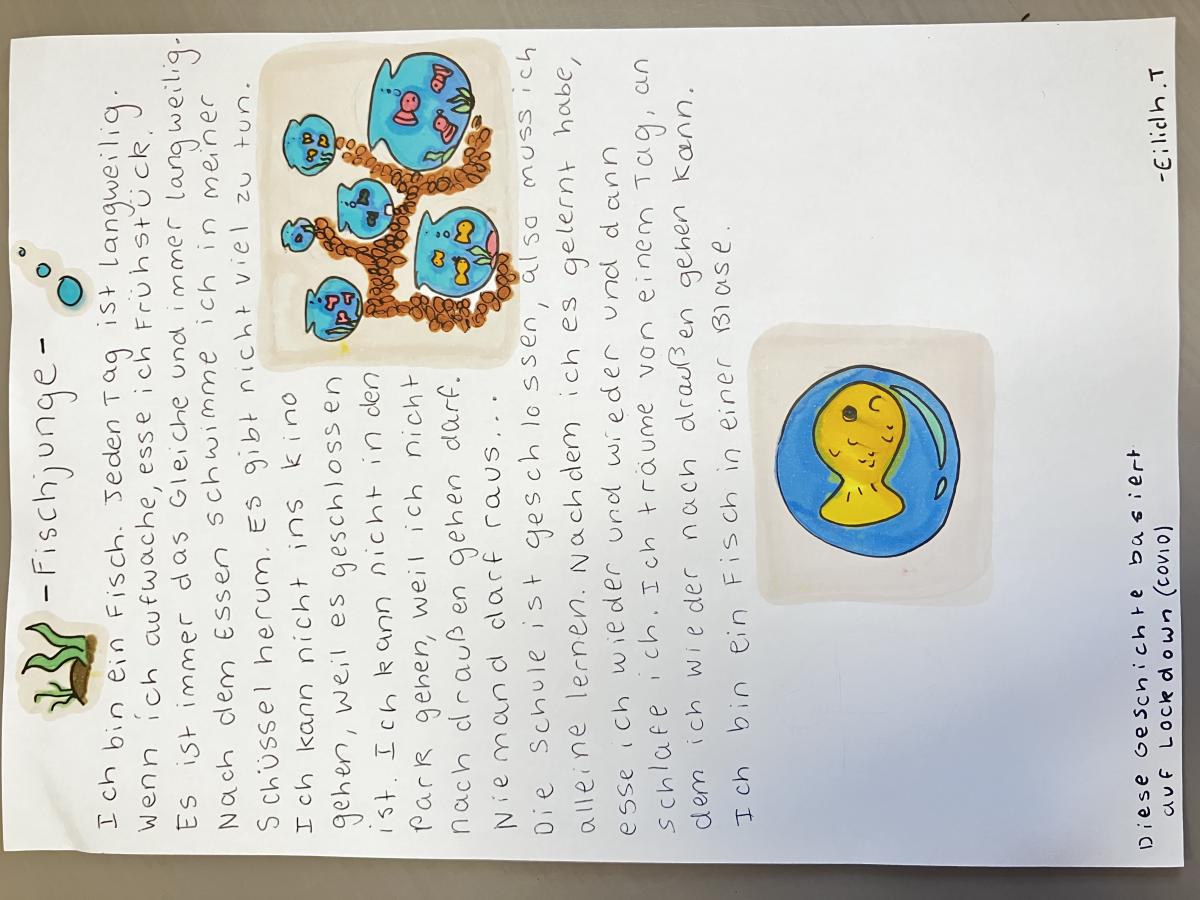 -Fischjunge-
Ich bin ein Fisch. Jeden Tag ist langweilig.
Wenn ich aufwache, esse ich Frühstück.
Es ist immer das Gleiche und immer langweilig.
Nach dem Essen schwimme ich in meiner
Schüssel herum. Es gibt nicht viel zu tun.
Ich kann nicht ins kino
gehen, weil es geschlossen
ist. Ich kann nicht in den
Park gehen, weil ich nicht
nach draußen gehen darf.
Niemand darf raus...
Die Schule ist geschlossen, also muss ich
alleine lernen. Nachdem ich es gelernt habe,
esse ich wieder und wieder und dann
schlafe ich. Ich träume von einem Tag, an
dem ich wieder nach draußen gehen kann.
Ich bin ein Fisch in einer Blase.
Diese Geschichte basiert
auf Lockdown (covid)
-Eilidh.T